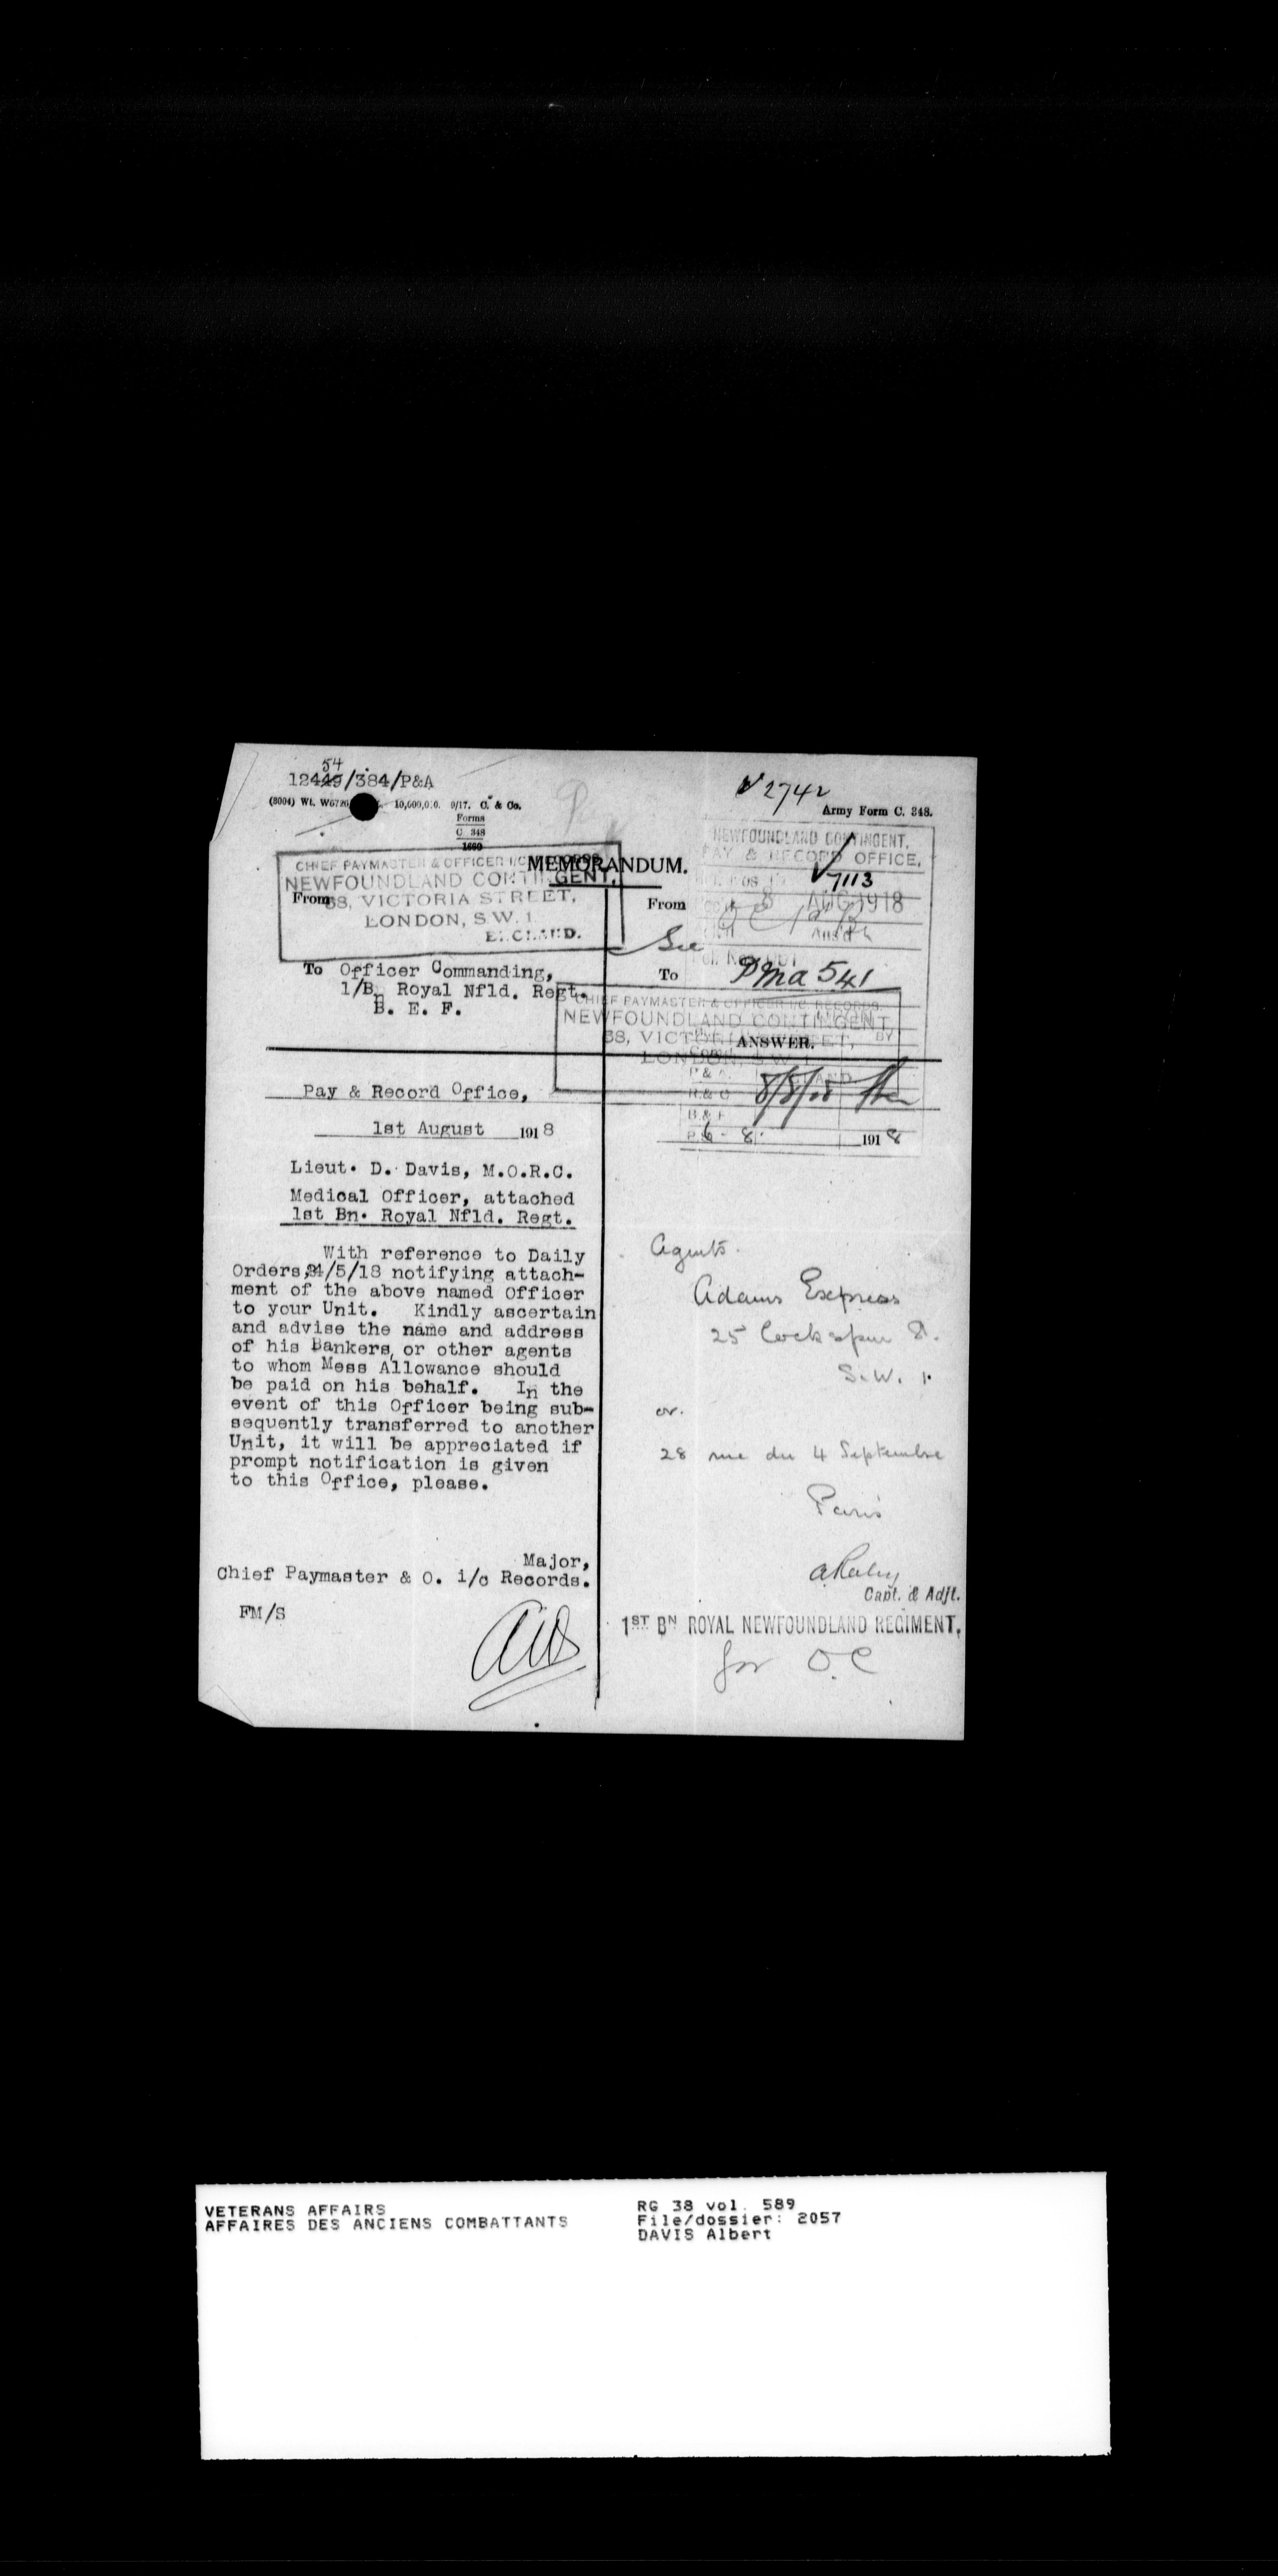 54
12449/384/P&A
10,000,0.0. 9/17. C. & Co.
Forms
C. 348
1660
V2742
Army Form C. 348.
MEMORANDUM.
CHIEF PAYMASTER & OFFICER I/C RECORDS
NEWFOUNDLAND CONTINGENT,
58, VICTORIA STREET,
LONDON, S.W. 1
ENGLAND.
From
NEWFOUNDLAND CONTINGENT,
PAY & RECORD OFFICE,
V7113
8 AUG 1918
From
See
To PMA 541
To Officer Commanding,
1/Bn Royal Nfld. Regt.
B. E. F.
CHIEF PAYMASTER & OFFICER I/C. RECORDS.
NEWFOUNDLAND CONTINGENT,
58, VICTORIA STREET,
LONDON, S.W. 1
ANSWER.
BY
P & A
R & C 8/8/18
B & F
Pay & Record Office,
1st August 1918
6 - 8. 1918
Lieut. D. Davis, M.O.R.C.
Medical Officer, attached
1st Bn. Royal Nfld. Regt.
With reference to Daily
Orders, 24/5/18 notifying attach-
ment of the above named Officer
to your Unit. Kindly ascertain
and advise the name and address
of his Bankers, or other agents
to whom Mess Allowance should
be paid on his behalf. In the
event of this Officer being sub-
sequently transferred to another
Unit, it will be appreciated if
prompt notification is given
to this Office, please.
Major,
Chief Paymaster & O. i/c Records.
FM/S
Agents.
Adams Express
25 Cockspur St.
S.W. 1.
or.
28 rue du 4 Septembre
Paris
Capt. & Adjt.
1ST BN ROYAL NEWFOUNDLAND REGIMENT.
for O.C
VETERANS AFFAIRS
AFFAIRES DES ANCIENS COMBATTANTS
RG 38 vol. 589
File/dossier: 2057
DAVIS Albert